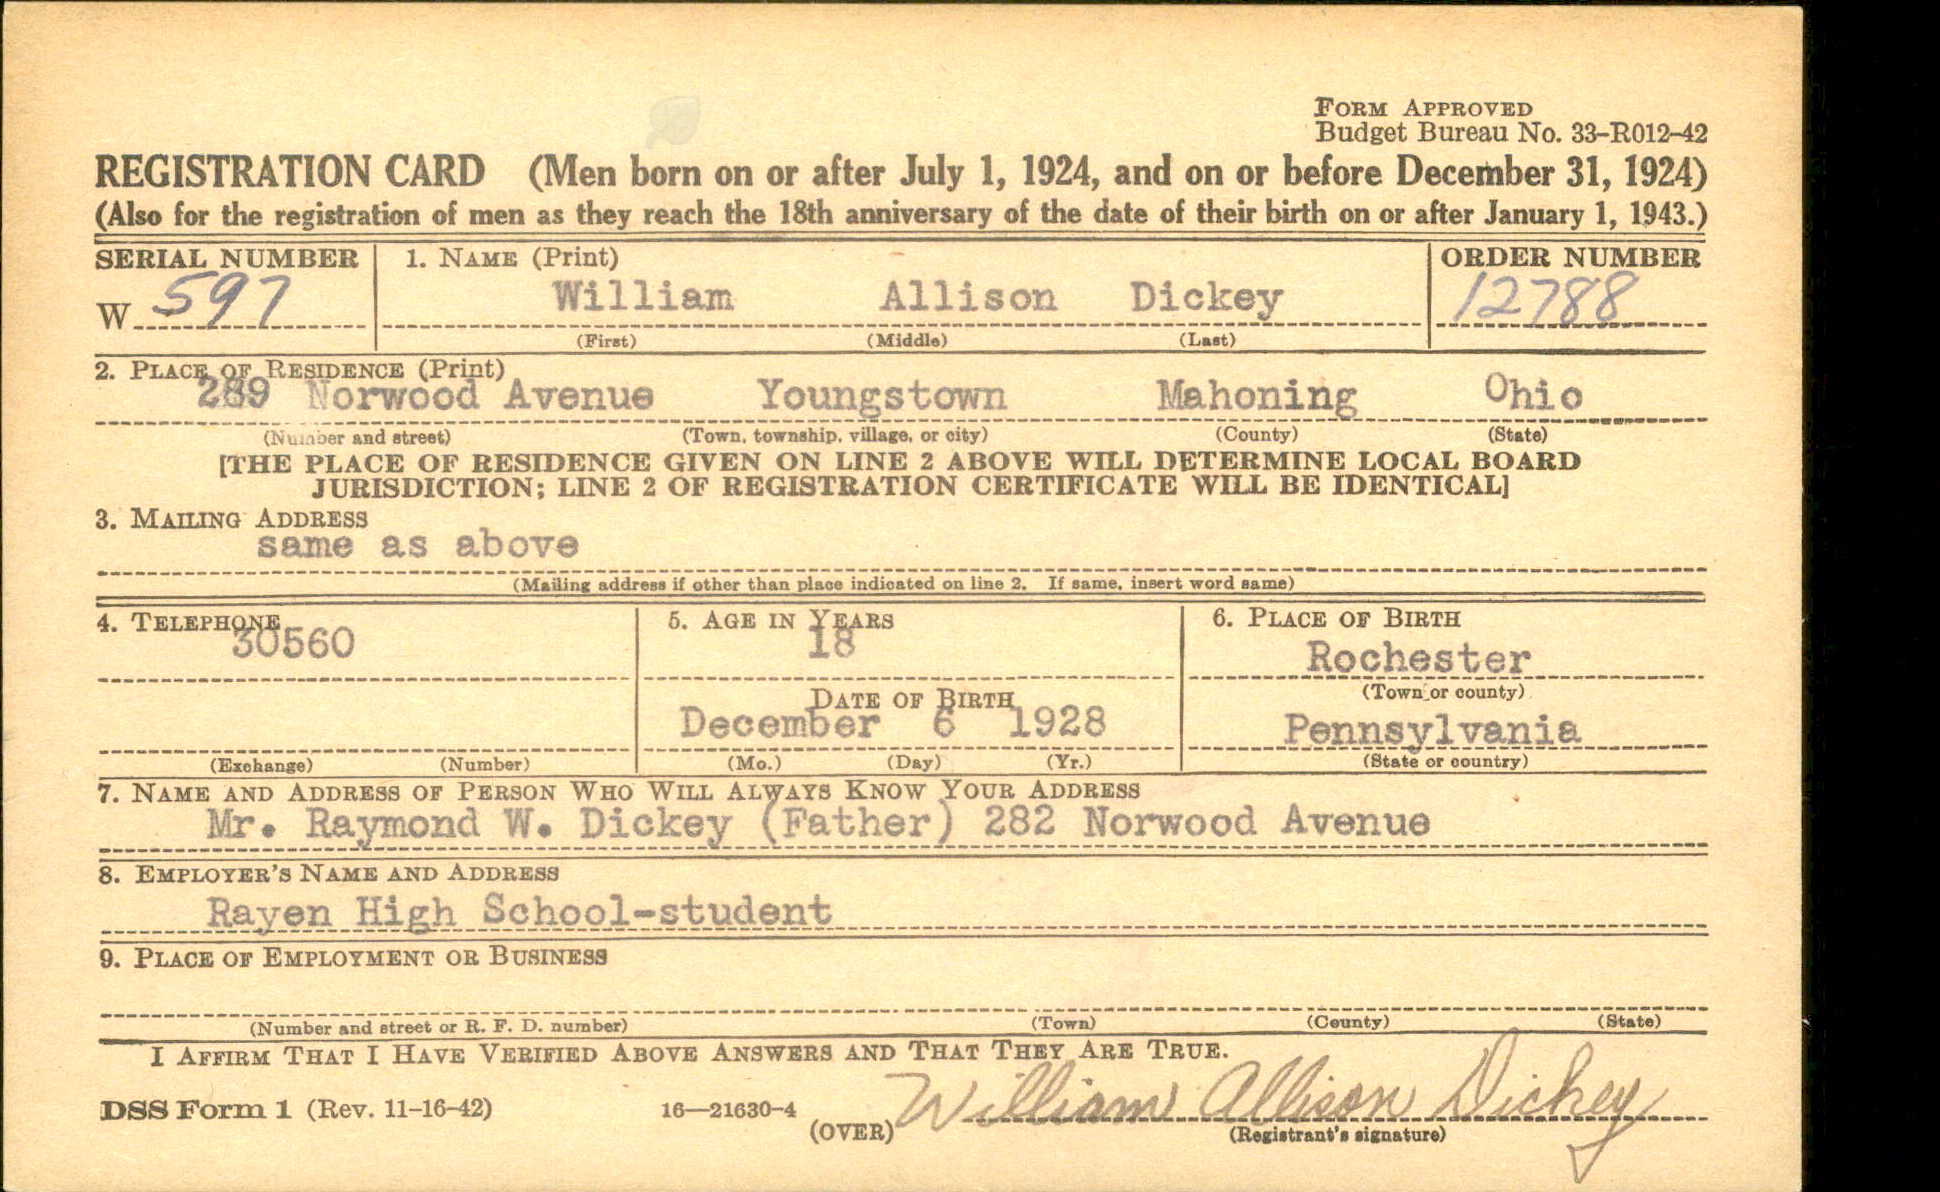 FORM APPROVED
Budget Bureau No. 33–R012–42
REGISTRATION CARD (Men born on or after July 1, 1924, and on or before December 31, 1924)
(Also for the registration of men as they reach the 18th anniversary of the date of their birth on or after January 1, 1943.)
SERIAL NUMBER 1. NAME (Print) ORDER NUMBER
W 597 William Allison Dickey 12788
(First) (Middle) (Last)
2. PLACE OF RESIDENCE (Print)
289 Norwood Avenue Youngstown Mahoning Ohio
(Number and street) (Town, township, village, or city) (County) (State)
[THE PLACE OF RESIDENCE GIVEN ON LINE 2 ABOVE WILL DETERMINE LOCAL BOARD
JURISDICTION; LINE 2 OF REGISTRATION CERTIFICATE WILL BE IDENTICAL]
3. MAILING ADDRESS
same as above
(Mailing address if other than place indicated on line 2. If same, insert word same)
4. TELEPHONE 5. AGE IN YEARS 6. PLACE OF BIRTH
30560 18 Rochester
(Town or county)
DATE OF BIRTH
December 6 1928 Pennsylvania
(Exchange) (Number) (Mo.) (Day) (Yr.) (State or country)
7. NAME AND ADDRESS OF PERSON WHO WILL ALWAYS KNOW YOUR ADDRESS
Mr. Raymond W. Dickey (Father) 282 Norwood Avenue
8. EMPLOYER'S NAME AND ADDRESS
Rayen High School-student
9. PLACE OF EMPLOYMENT OR BUSINESS
(Number and street or R. F. D. number) (Town) (County) (State)
I AFFIRM THAT I HAVE VERIFIED ABOVE ANSWERS AND THAT THEY ARE TRUE.
DSS Form 1 (Rev. 11-16-42) 16—21630-4 William Allison Dickey
(OVER) (Registrant's signature)